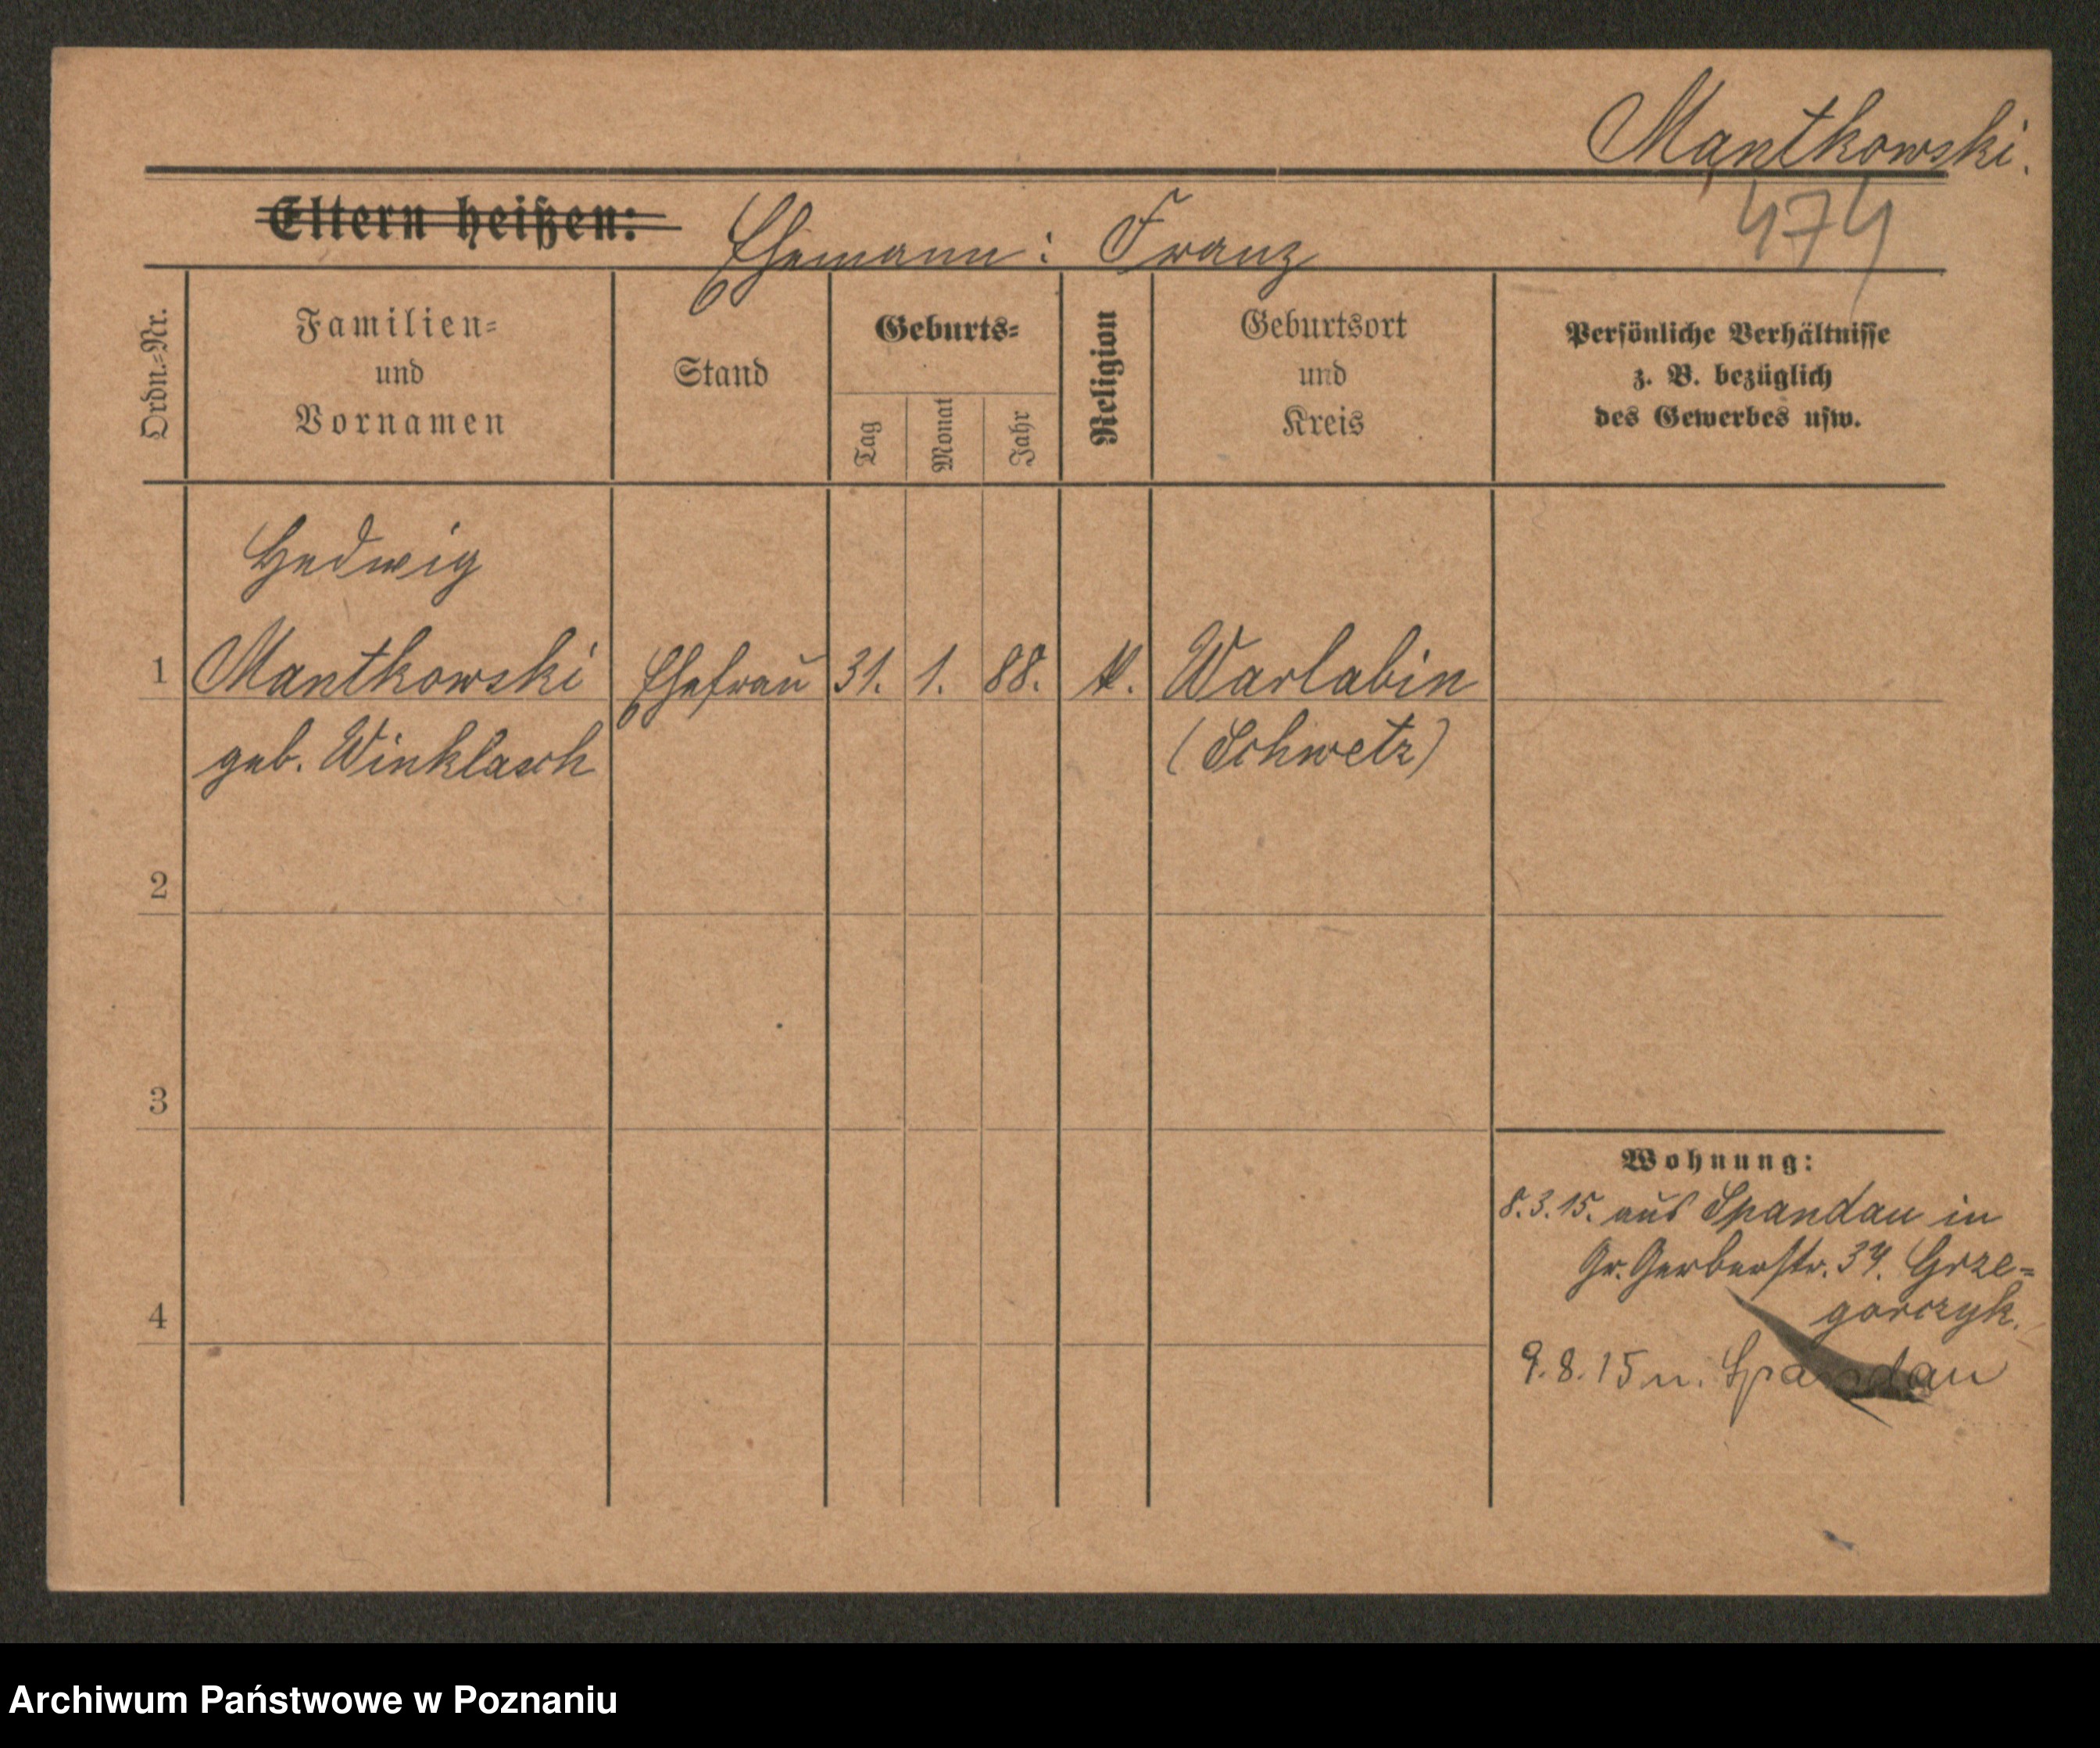 Mantkowski.
474
Eltern heißen: Ehemann: Franz
Ordn.-Nr.
Familien-
und
Vornamen
Stand
Geburts-
Tag
Monat
Jahr
Religion
Geburtsort
und
Kreis
Persönliche Verhältnisse
z. B. bezüglich
des Gewerbes usw.
Hedwig
1 Mantkowski Ehefrau 31. 1. 88. k. Warlabin
geb. Winklasch (Schwetz)
2
3
4
Wohnung:
8.3.15. aus Spandau in
Gr. Gerberstr. 34. Grze-
gorczyk.
9.8.15 n. Spandau
Archiwum Państwowe w Poznaniu